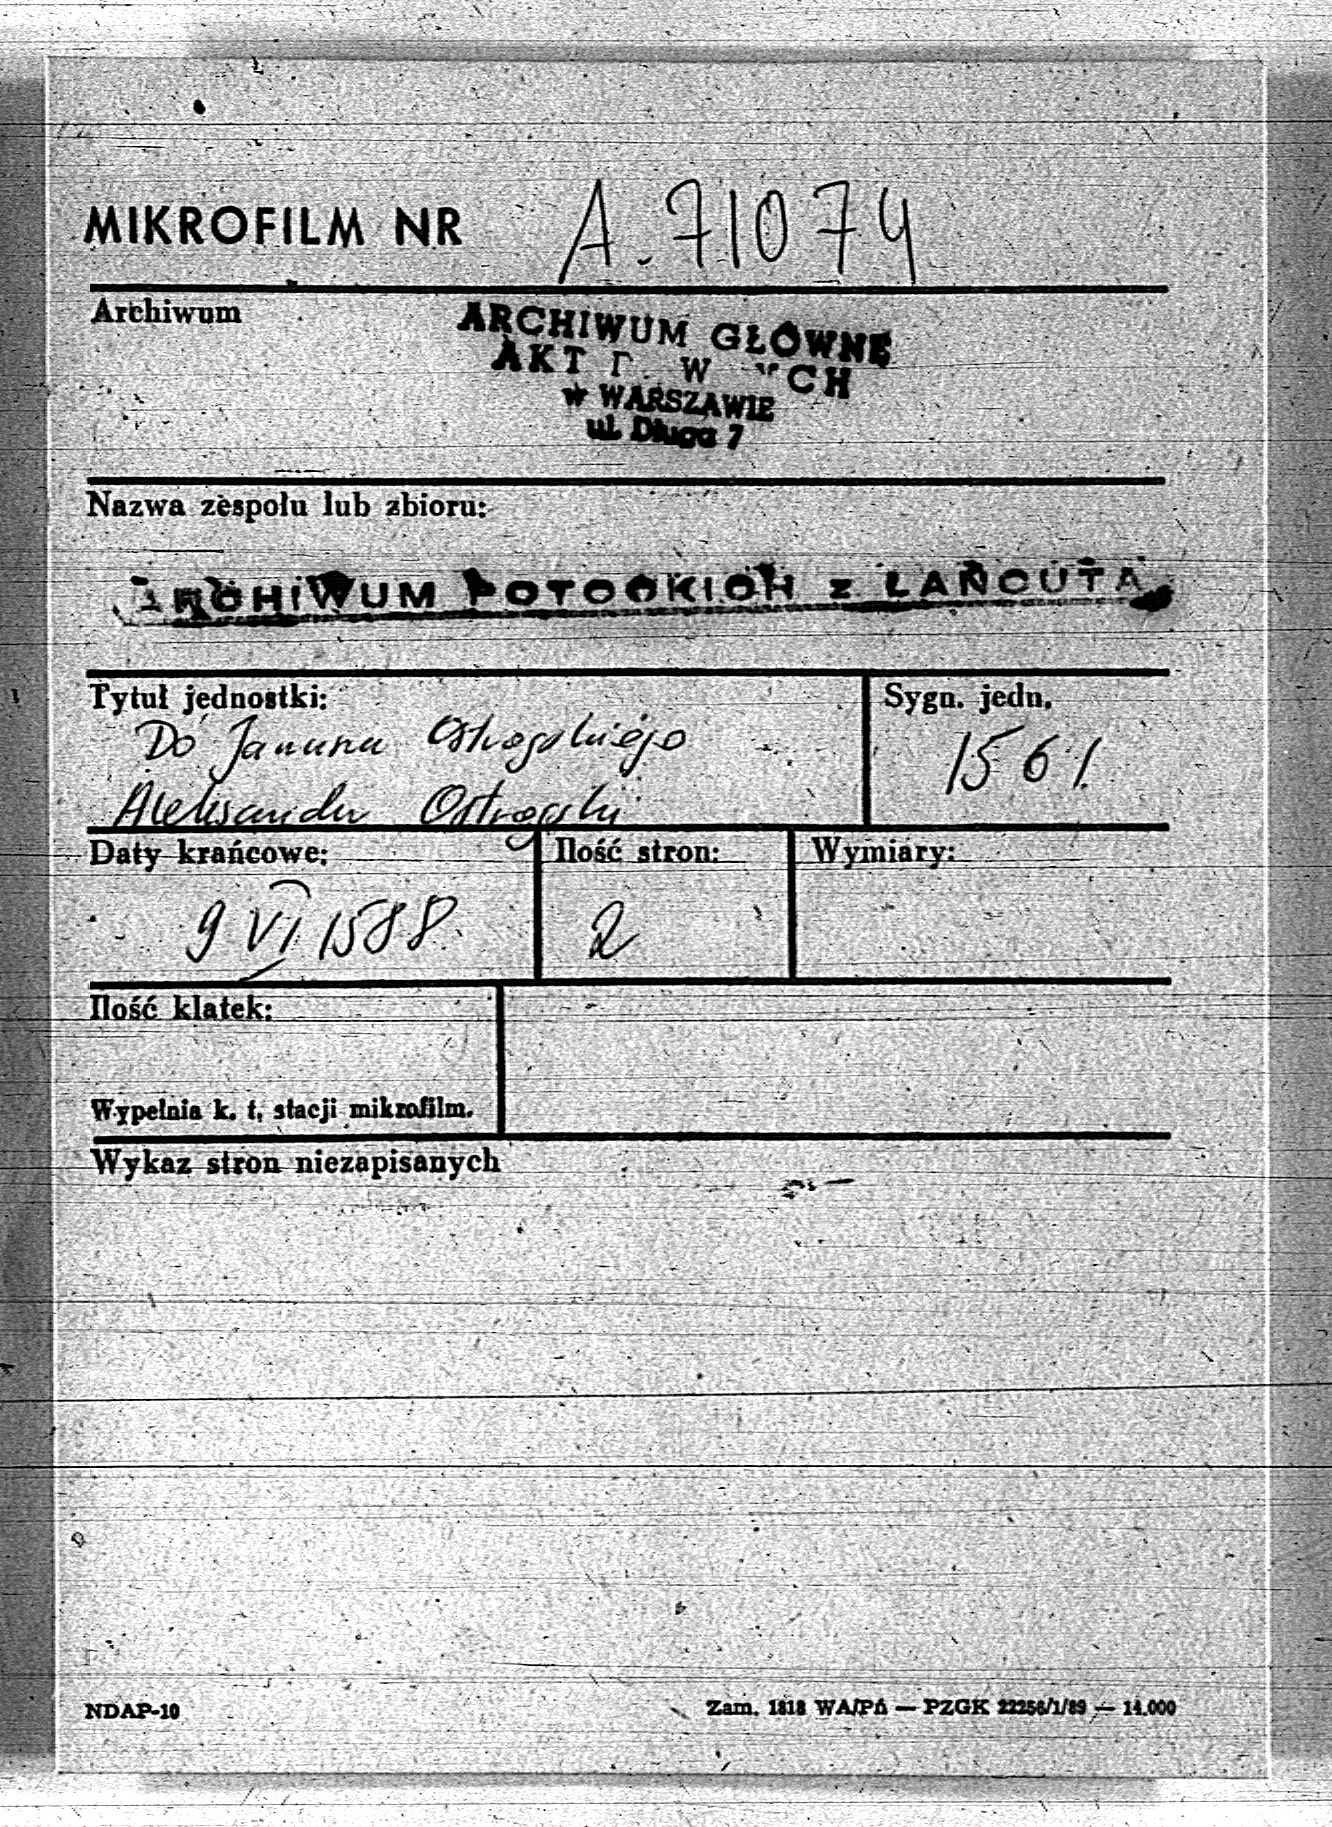 MIKROFILM NR A. 71074
Archiwum
ARCHIWUM GŁÓWNE
AKT D W CH
w WARSZAWIE
ul. Długa 7
Nazwa zespołu lub zbioru:
ARCHIWUM POTOCKICH z ŁAŃCUTA
Tytuł jednostki:
Sygn. jedn.
Do Janusza Ostrogskiego
1561
Aleksander Ostrogski
Daty krańcowe:
Ilość stron:
Wymiary:
9 VI 1588
2
Ilość klatek:
Wypełnia k. t. stacji mikrofilm.
Wykaz stron niezapisanych
NDAP-10
Zam. 1818 WA/Pń — PZGK 22256/1/89 — 14.000